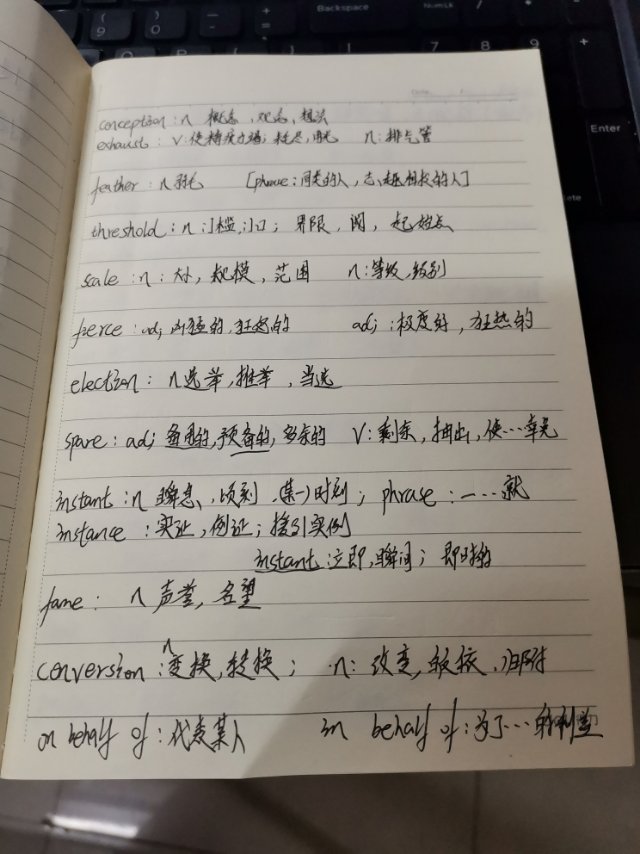 Backspace
NumLk
7 8 9
Enter
conception: n 概念,观念、想法
exhaust: v:使精疲力竭;耗尽,用光 n:排气管
feather: n 羽毛 [phrase:同类的人,志趣相投的人]
threshold: n:门槛,门口;界限,阈,起始点
scale: n:大小,规模,范围 n:等级,级别
fierce: adj 凶猛的,狂怒的 adj:极度的,狂热的
election: n 选举,推举,当选
spare: adj 备用的,预备的,多余的 v:剩余,抽出,使…幸免
instant: n 瞬息、顷刻,(某一)时刻;phrase:一…就
instance:实证,例证;援引实例
instant:立即,瞬间;即时的
fame: n 声誉,名望
conversion: n 变换,转换; n:改变,皈依,归附
on behalf of:代表某人 in behalf of:为了…的利益